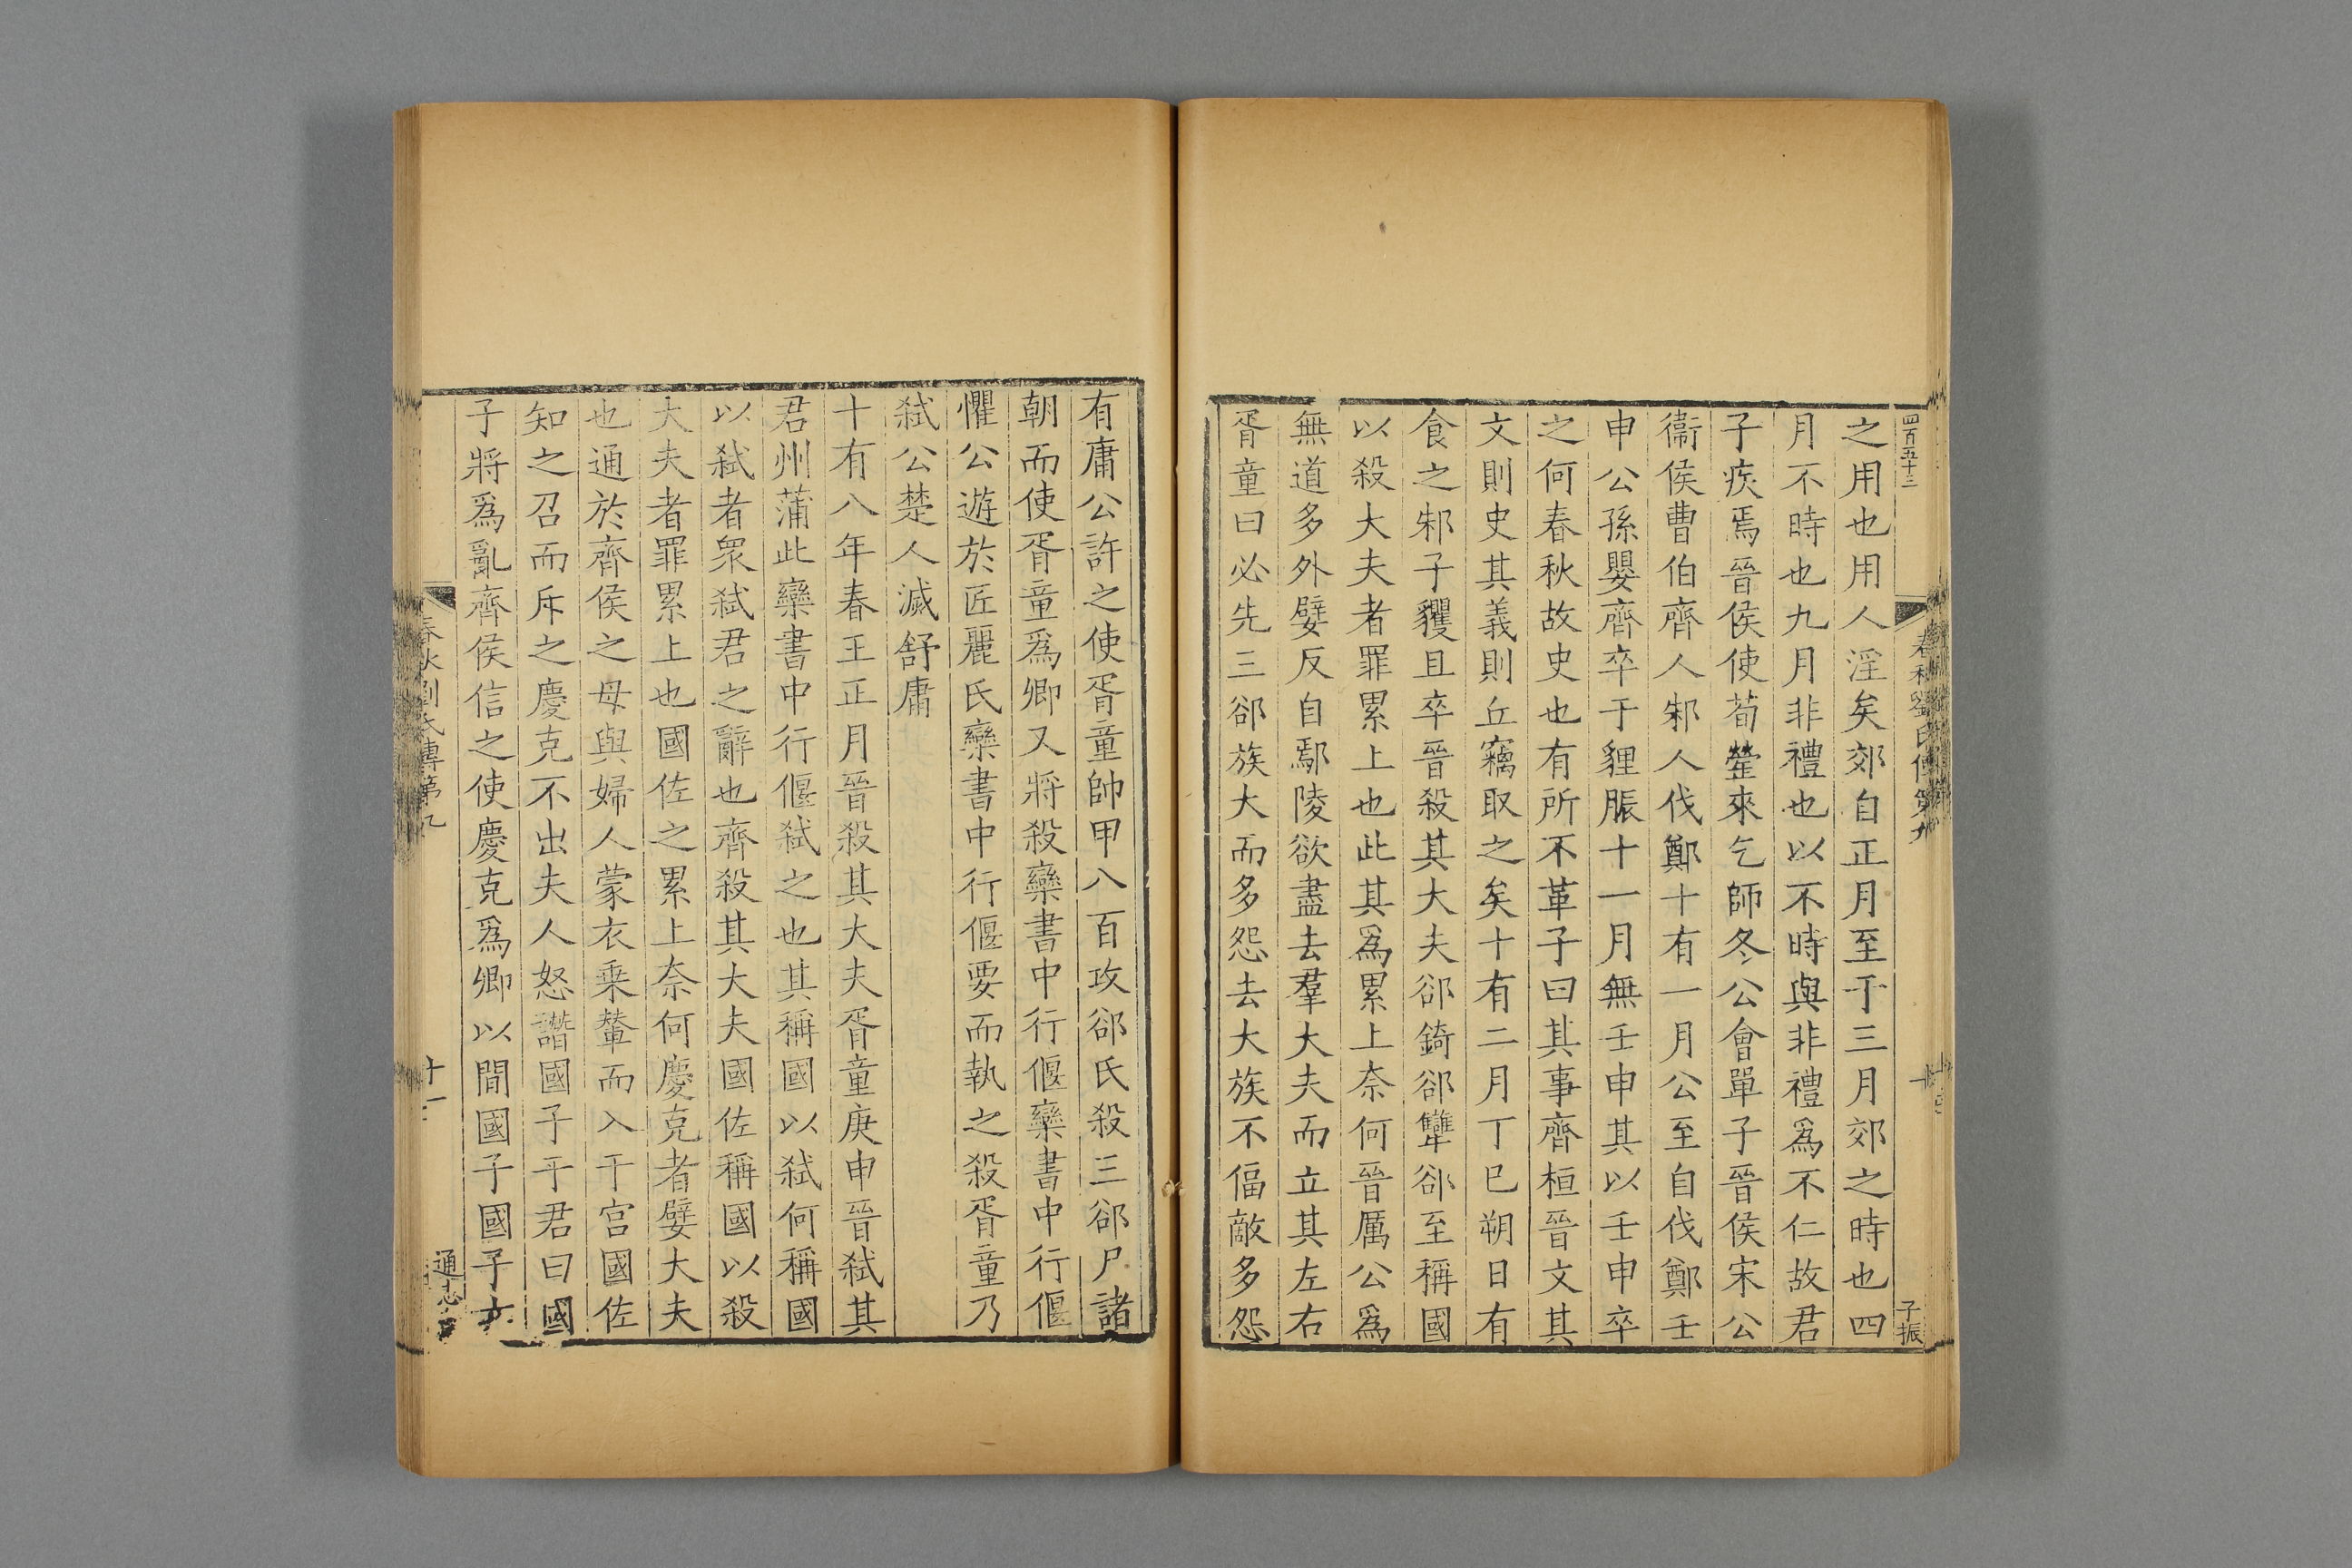 四百五十三
子振
之用也用人淫矣郊自正月至于三月郊之時也四
月不時也九月非禮也以不時與非禮爲不仁故君
子疾焉晉侯使荀罃來乞師冬公會單子晉侯宋公
衞侯曹伯齊人邾人伐鄭十有一月公至自伐鄭壬
申公孫嬰齊卒于貍脤十一月無壬申其以壬申卒
之何春秋故史也有所不革子曰其事齊桓晉文其
文則史其義則丘竊取之矣十有二月丁巳朔日有
食之邾子貜且卒晉殺其大夫郤錡郤犫郤至稱國
以殺大夫者罪累上也此其爲累上奈何晉厲公爲
無道多外嬖反自鄢陵欲盡去羣大夫而立其左右
胥童曰必先三郤族大而多怨去大族不偪敵多怨
有庸公許之使胥童帥甲八百攻郤氏殺三郤尸諸
朝而使胥童爲卿又將殺欒書中行偃欒書中行偃
懼公遊於匠麗氏欒書中行偃要而執之殺胥童乃
弑公楚人滅舒庸
十有八年春王正月晉殺其大夫胥童庚申晉弑其
君州蒲此欒書中行偃弑之也其稱國以弑何稱國
以弑者衆弑君之辭也齊殺其大夫國佐稱國以殺
大夫者罪累上也國佐之累上奈何慶克者嬖大夫
也通於齊侯之母與婦人蒙衣乗輦而入于宫國佐
知之召而斥之慶克不出夫人怒譖國子于君曰國
子將爲亂齊侯信之使慶克爲卿以間國子國子
春秋劉氏傳第九
通志